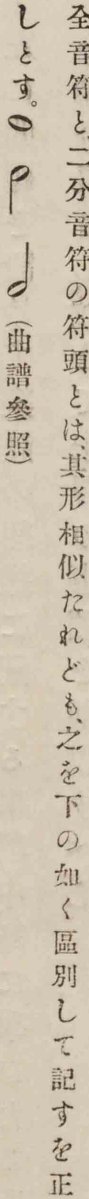 全音符と、二分音符の符頭とは、其形相似たれども、之を下の如く區別して記すを正
しとす。(曲譜參照)